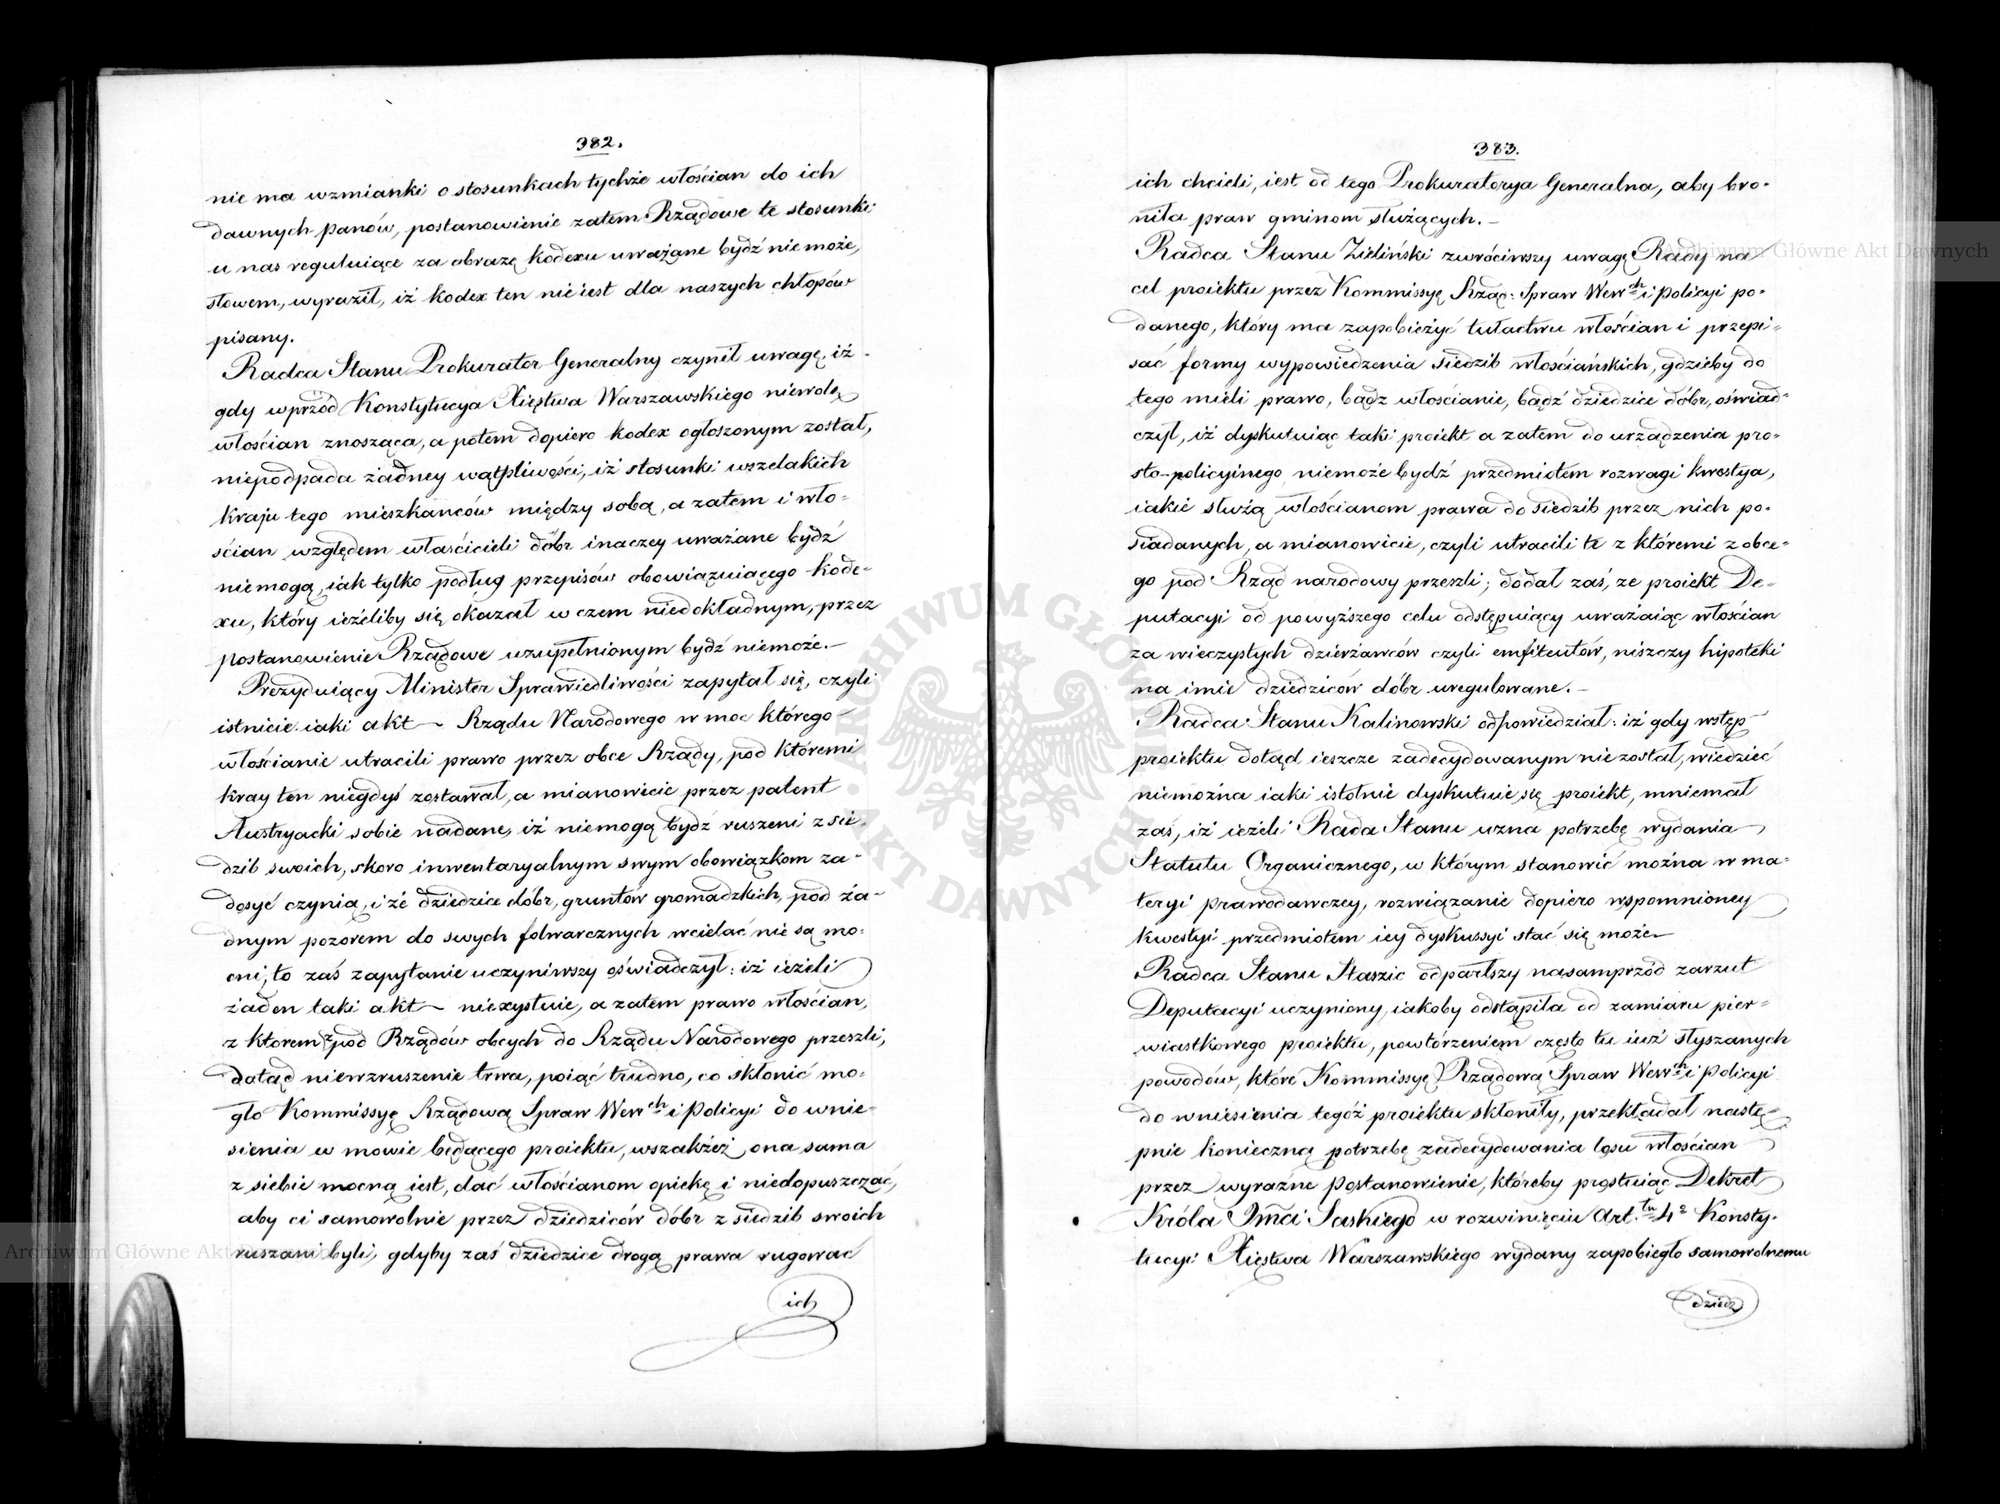 382.
nie ma wzmianki o stosunkach tychże włościan do ich
dawnych panów, postanowienie zatem Rządowe te stosunki
u nas reguluiące za obrazę kodexu uważane bydź nie może,
słowem, wyraził, iż kodex ten nie iest dla naszych chłopów
pisany.
Radca Stanu Prokurator Generalny czynił uwagę, iż
gdy wprzód Konstytucya Xięstwa Warszawskiego niewolę
włościan znosząca, a potem dopiero kodex ogłoszonym został,
niepodpada żadney wątpliwości, iż stosunki wszelakich
kraju tego mieszkańców między sobą, a zatem i wło-
ścian względem właścicieli dóbr inaczey uważane bydź
niemogą, iak tylko podług przepisów obowiązuiącego kode-
xu, który ieżeliby się okazał w czem niedokładnym, przez
postanowienie Rządowe uzupełnionym bydź niemoże.-
Prezyduiący Minister Sprawiedliwości zapytał się, czyli
istnieie iaki akt Rządu Narodowego w moc którego
włościanie utracili prawo przez obce Rządy, pod któremi
kray ten niegdyś zostawał, a mianowicie przez patent
Austryacki sobie nadane, iż niemogą bydź ruszeni z sie-
dzib swoich, skoro inwentaryalnym swym obowiązkom za-
dosyć czynią, i że dziedzice dóbr, gruntów gromadzkich, pod ża-
dnym pozorem do swych folwarcznych wcielać nie są mo-
cni; to zaś zapytanie uczyniwszy oświadczył: iż ieżeli
żaden taki akt niexystuie, a zatem prawo włościan,
z którem pod Rządów obcych do Rządu Narodowego przeszli,
dotąd niewzruszenie trwa, poiąć trudno, co skłonić mo-
gło Kommissyę Rządową Spraw Wew^ch i Policyi do wnie-
sienia w mowie będącego proiektu, wszakżeż ona sama
z siebie mocną iest, dać włościanom opiekę i niedopuszczać,
aby ci samowolnie przez dziedziców dóbr z siedzib swoich
ruszani byli, gdyby zaś dziedzice drogą prawa rugować
ich
383.
ich chcieli, iest od tego Prokuratorya Generalna, aby bro-
niła praw gminom służących.-
Radca Stanu Zieliński zwróciwszy uwagę Rady na
cel proiektu przez Kommissyę Rząd: Spraw Wew^ch i Policyi po-
danego, który ma zapobieżyć tułactwu włościan i przepi-
sać formy wypowiedzenia siedzib włościańskich, gdzieby do
tego mieli prawo, bądź włościanie, bądź dziedzice dóbr, oświad-
czył, iż dyskutuiąc taki proiekt a zatem do urządzenia pro-
sto-policyinego niemoże bydź przedmiotem rozwagi kwestya,
iakie służą włościanom prawa do siedzib przez nich po-
siadanych, a mianowicie, czyli utracili te z któremi z obce-
go pod Rząd narodowy przeszli; dodał zaś, że proiekt De-
putacyi od powyższego celu odstępuiący uważaiąc włościan
za wieczystych dzierżawców czyli emfiteutów, niszczy hipoteki
na imie dziedziców dóbr uregulowane.-
Radca Stanu Kalinowski odpowiedział: iż gdy wstęp
proiektu dotąd ieszcze zadecydowanym nie został, wiedzieć
niemożna iaki istotnie dyskutuie się proiekt, mniemał
zaś, iż ieżeli Rada Stanu uzna potrzebę wydania
Statutu Organicznego, w którym stanowić można w ma-
teryi prawodawczey, rozwiązanie dopiero wspomnioney
kwestyi przedmiotem iey dyskussyi stać się może
Radca Stanu Staszic odparłszy nasamprzód zarzut
Deputacyi uczyniony, iakoby odstąpiła od zamiaru pier-
wiastkowego proiektu, powtórzeniem często tu iuż słyszanych
powodów, które Kommissyę Rządową Spraw Wew^ch i Policyi
do wniesienia tegóż proiektu skłoniły, przekładał nastę-
pnie konieczną potrzebę zadecydowania losu włościan
przez wyraźne postanowienie, któreby prostuiąc Dekret
Króla Jmci Saskiego w rozwinięciu Art.^tu 4^o Konsty-
tucyi Xięstwa Warszawskiego wydany zapobiegło samowolnemu
dziedz
Archiwum Główne Akt Dawnych
Archiwum Główne Akt Dawnych
ARCHIWUM GŁÓWNE AKT DAWNYCH